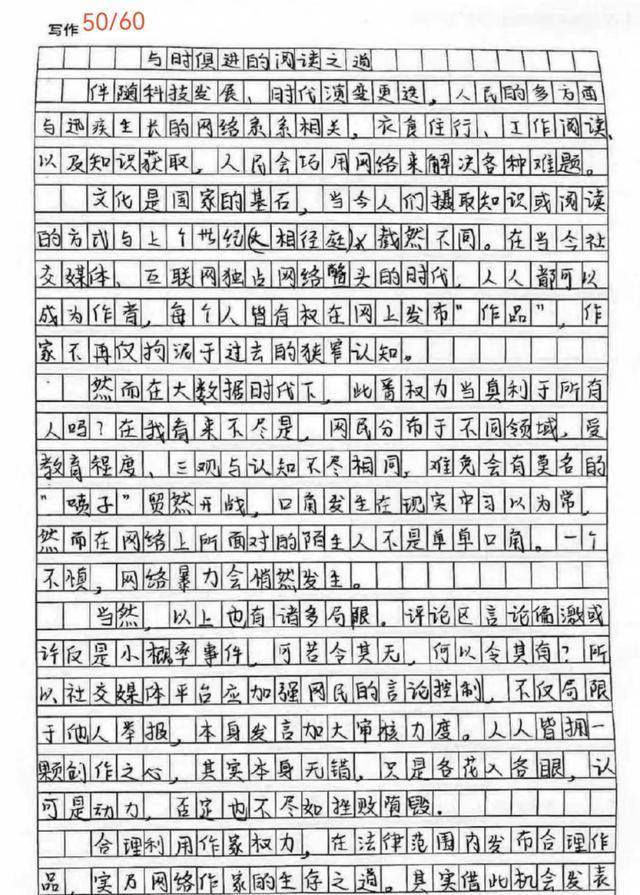 写作 50/60
与时俱进的阅读之道
伴随科技发展、时代演变更迭，人民的多方面
与迅疾生长的网络系系相关，衣食住行、工作阅读、
以及知识获取，人民会巧用网络来解决各种难题。
文化是国家的基石，当今人们摄取知识或阅读
的方式与上个世纪(大相径庭)截然不同。在当今社
交媒体、互联网独占网络鳌头的时代，人人都可以
成为作者，每个人皆有权在网上发布"作品"，作
家不再仅拘泥于过去的狭窄认知。
然而在大数据时代下，此番权力当真利于所有
人吗？在我看来不尽是，网民分布于不同领域，受
教育程度、三观与认知不尽相同，难免会有莫名的
"喷子"贸然开战，口角发生在现实中习以为常，
然而在网络上所面对的陌生人不是单单口角。一个
不慎，网络暴力会悄然发生。
当然，以上也有诸多局限。评论区言论偏激或
许仅是小概率事件，可若令其无，何以令其有？所
以社交媒体平台应加强网民的言论控制，不仅局限
于他人举报，本身发言加大审核力度。人人皆拥一
颗创作之心，其实本身无错，只是各花入各眼，认
可是动力，否定也不尽如挫败陨毁。
合理利用作家权力，在法律范围内发布合理作
品，实乃网络作家的生存之道。其实借此机会发表